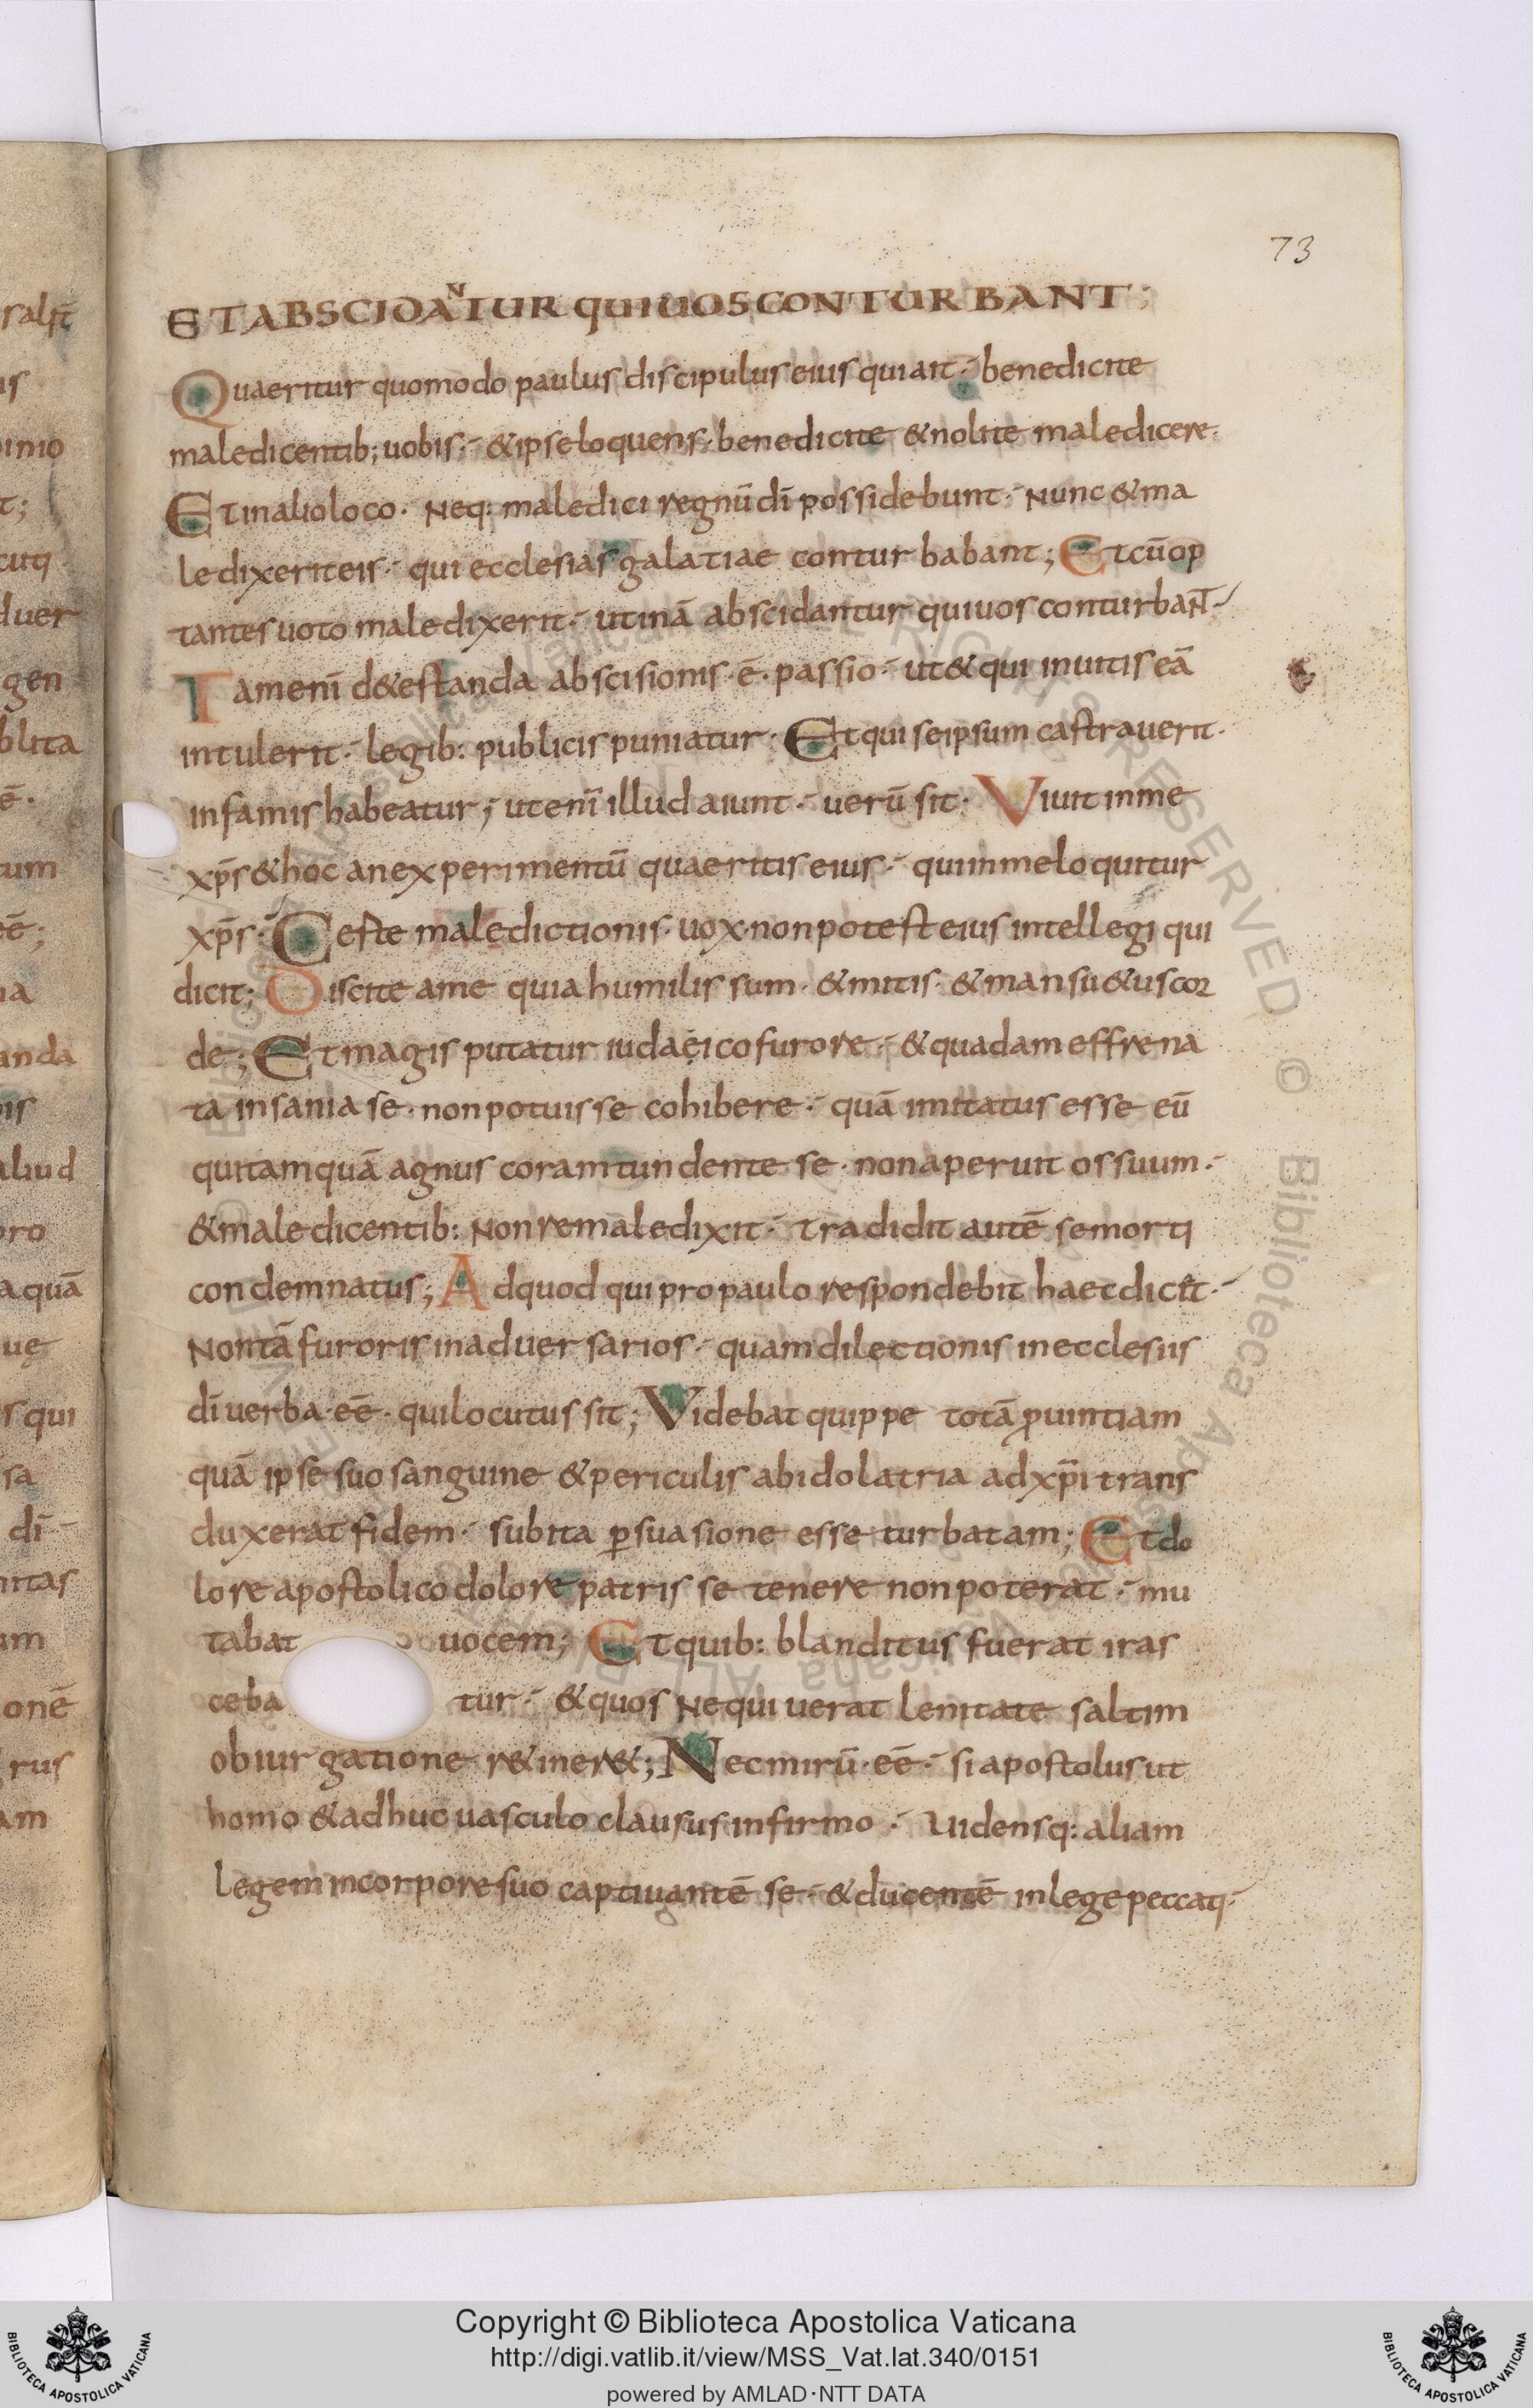 73
ET ABSCIDANTUR QUI UOS CONTURBANT;
Quaeritur quomodo paulus discipulus eius qui ait· benedicite
maledicentib; uobis· & ipse loquens· benedicite & nolite maledicere·
Et in alio loco· Neq: maledici regnū dī possidebunt· Nunc & ma
ledixerit eis· qui ecclesias galatiae conturbabant; Et cū op
tantes uoto maledixerit· utinā abscidantur qui uos conturban̄t·
Tam enī d&estanda abscisionis· ē· passio· ut & qui inuitis eā
intulerit· legib: publicis puniatur· Et qui se ipsum castrauerit·
infamis habeatur; ut enī illud aiunt· uerū sit· Viuit in me
xp̄s & hoc an experimentū quaeritis eius· qui in me loquitur
xp̄s· Certe maledictionis· uox· non potest eius intellegi qui
dicit; Discite a me quia humilis sum· & mitis· & mansu&us cor
de; Et magis putatur iudaeico furore· & quadam effrena
ta insania se· non potuisse cohibere· quā imitatus esse eū
qui tamquā agnus coram tundente se· non aperuit os suum·
& maledicentib: Non remaledixit· tradidit autē se morti
condemnatus; Ad quod qui pro paulo respondebit haec dicit·
Non tā furoris in aduersarios· quam dilectionis in ecclesiis
dī uerba· eē· qui locutus sit; Videbat quippe totā ꝓuintiam
quā ipse suo sanguine & periculis ab idolatria ad xp̄i trans
duxerat fidem· subita ꝑsuasione esse turbatam; Et do
lore apostolico dolore patris se tenere non poterat· mu
tabat uocem; Et quib: blanditus fuerat iras
ceba tur· & quos Nequiuerat lenitate saltim
obiurgatione r&iner&; Nec mirū· eē· si apostolus ut
homo & adhuc uasculo clausus infirmo· Uidensq: aliam
legem in corpore suo captiuantē se· & ducentē in lege peccati·
salīt
us
inio
t;
duer
gen
blita
ē·
tum
eē;
ia
anda
bis
aliud
pro
a quā
uę
s qui
sa
dī
nitas
um
onē
rus
am
Copyright © Biblioteca Apostolica Vaticana
http://digi.vatlib.it/view/MSS_Vat.lat.340/0151
powered by AMLAD·NTT DATA
BIBLIOTECA APOSTOLICA VATICANA
BIBLIOTECA APOSTOLICA VATICANA